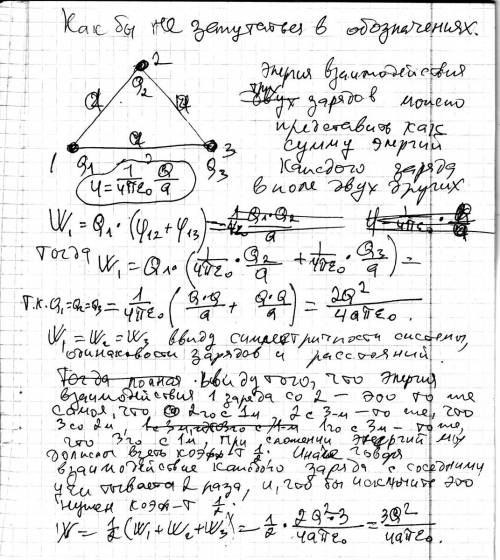 Как бы не запутаться в обозначениях.
2
Q2
a
a
a
1
3
Q1
Q3
φ = 1/4πε0 · Q/a
Энергия взаимодействия
трех зарядов можно
представить как
сумму энергий
каждого заряда
в поле двух других
W1 = Q1·(φ12+φ13)
Тогда W1 = Q1·(1/4πε0 · Q2/a + 1/4πε0 · Q3/a) =
т.к. Q1=Q2=Q3 = 1/4πε0 (Q·Q/a + Q·Q/a) = 2Q²/4aπε0.
W1 = W2 = W3 ввиду симметричности системы,
одинаковости зарядов и расстояний.
Ввиду того, что энергия
взаимодействия 1 заряда со 2 – это то же
самое, что 2го с 1м, 2 с 3-м – то же, что
3 со 2м, 1го с 3-м – то же,
что 3го с 1м, при сложении энергий мы
должны взять коэф-т 1/2. Иначе говоря
взаимодействие каждого заряда с соседним
учитывается 2 раза, и, чтобы исключить это
нужен коэф-т 1/2.
W = 1/2 (W1+W2+W3) = 1/2 · 2Q²·3/4aπε0 = 3Q²/4aπε0.